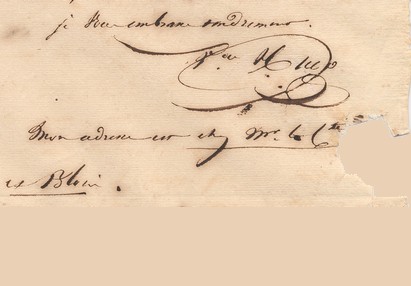 je vous embrasse tendrement.
Hugo
Mon adresse est chez Mr. le Cte
à Blois.